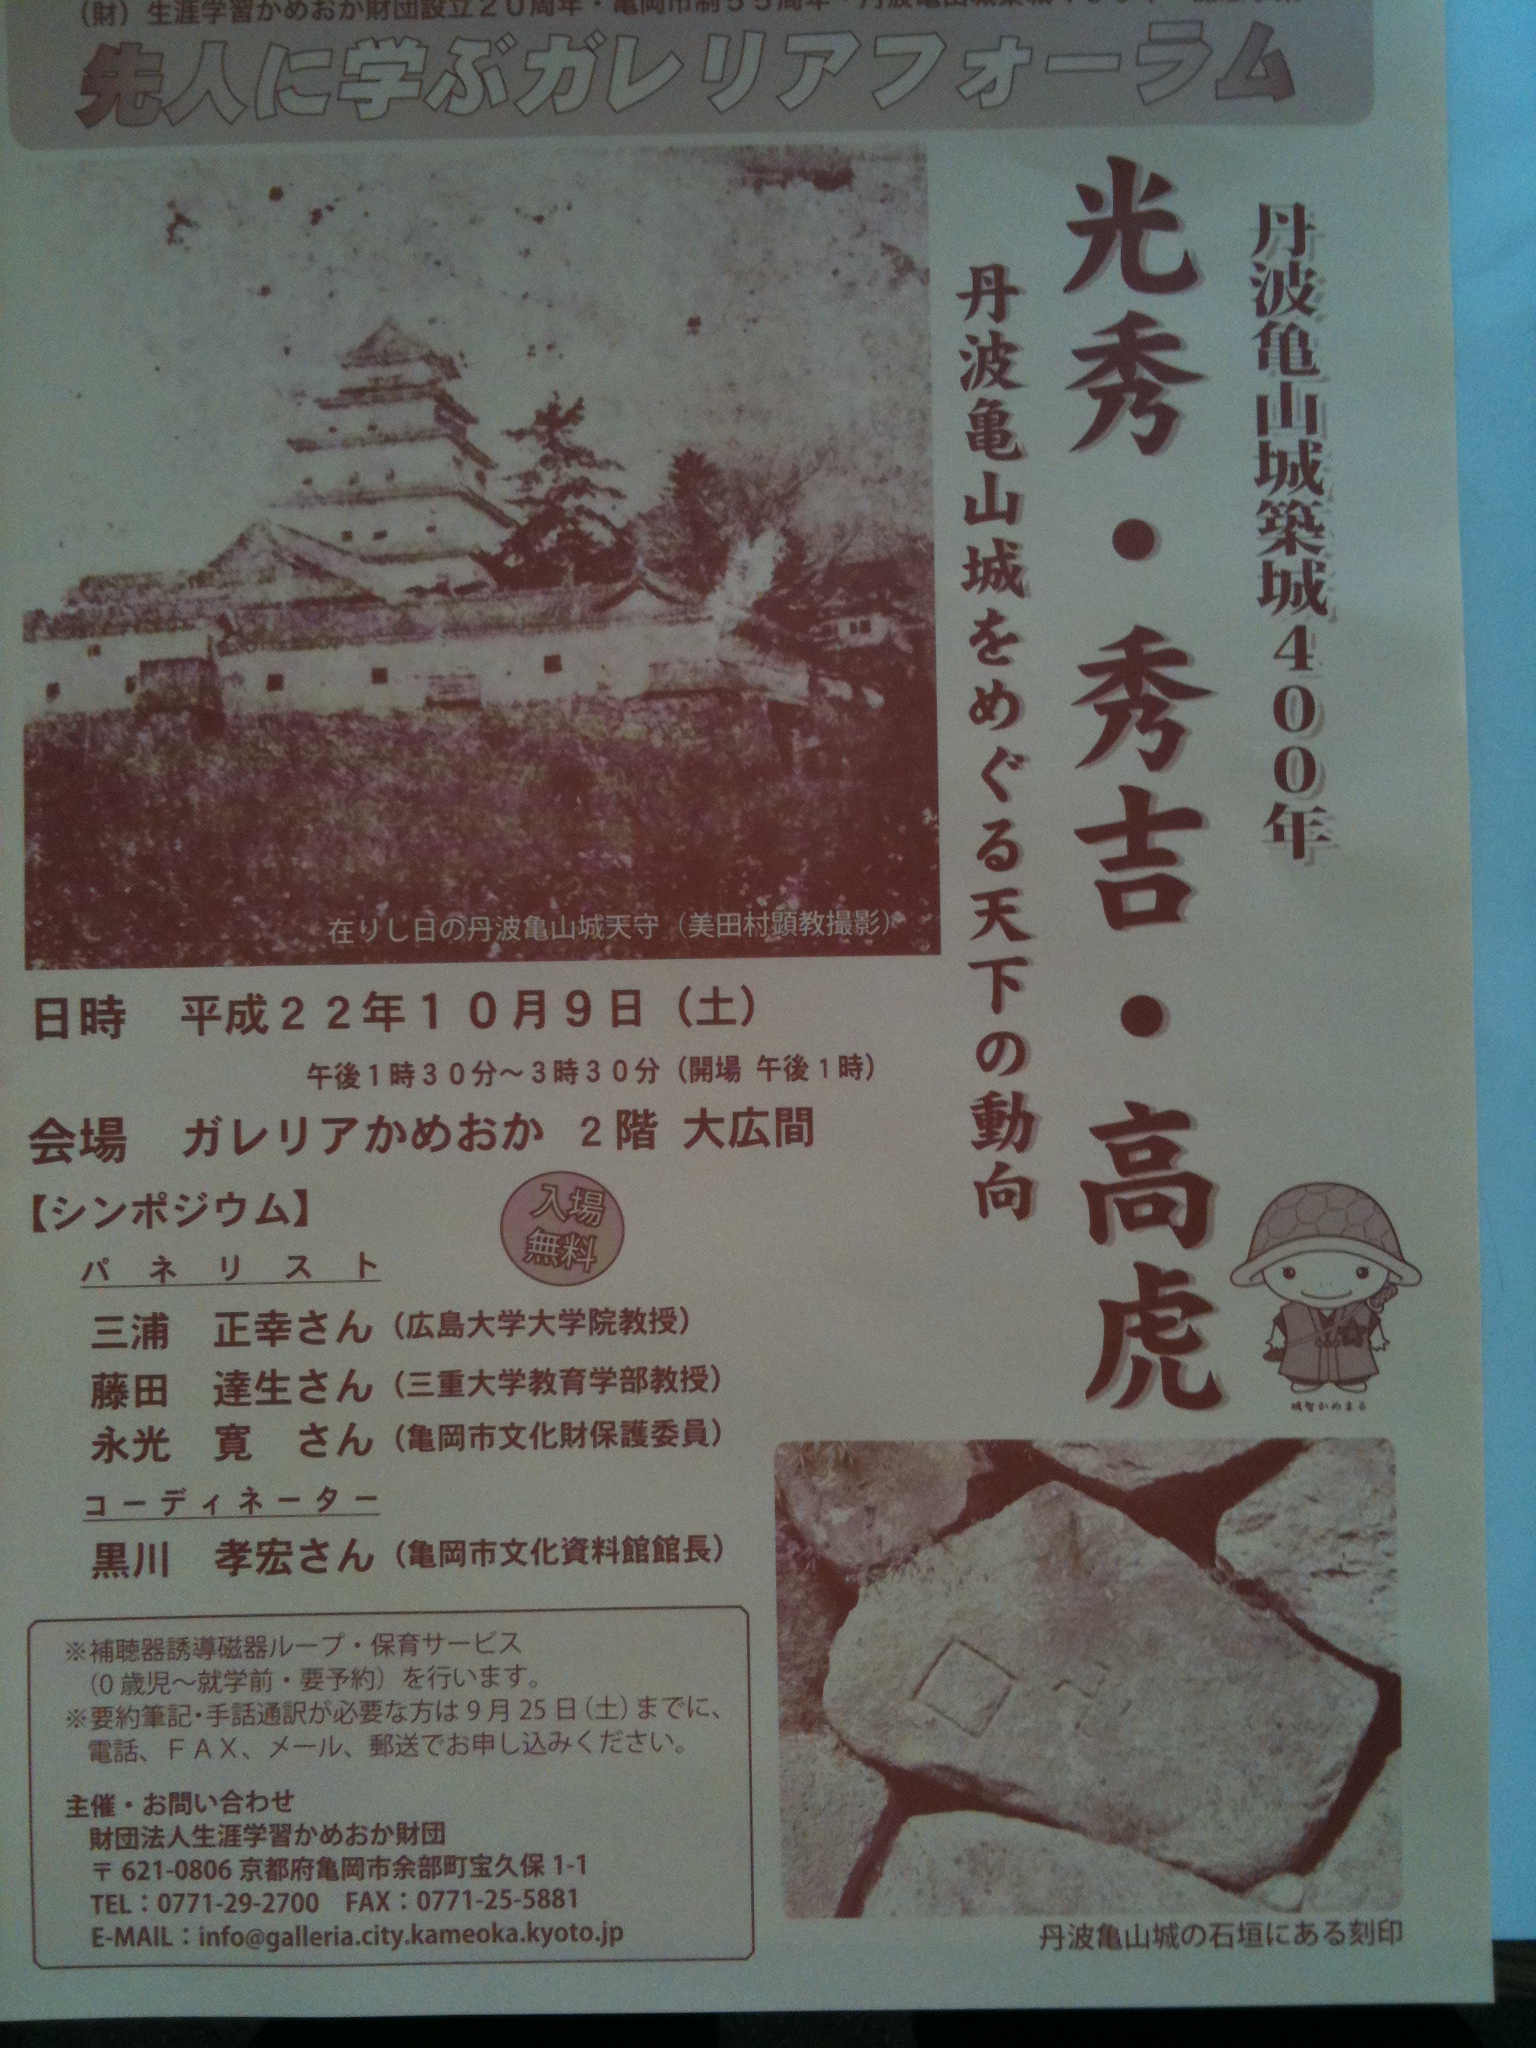 (財)生涯学習かめおか財団設立20周年・亀岡市制55周年・丹波亀山城築城400年
先人に学ぶガレリアフォーラム
丹波亀山城築城400年
光秀・秀吉・高虎
丹波亀山城をめぐる天下の動向
在りし日の丹波亀山城天守(美田村顕教撮影)
日時 平成22年10月9日(土)
午後1時30分~3時30分(開場 午後1時)
会場 ガレリアかめおか 2階 大広間
【シンポジウム】
入場
無料
パネリスト
三浦 正幸さん(広島大学大学院教授)
藤田 達生さん(三重大学教育学部教授)
永光 寛 さん(亀岡市文化財保護委員)
コーディネーター
黒川 孝宏さん(亀岡市文化資料館館長)
明智かめまる
※補聴器誘導磁器ループ・保育サービス
(0歳児~就学前・要予約)を行います。
※要約筆記・手話通訳が必要な方は9月25日(土)までに、
電話、FAX、メール、郵送でお申し込みください。
主催・お問い合わせ
財団法人生涯学習かめおか財団
〒621-0806 京都府亀岡市余部町宝久保1-1
TEL:0771-29-2700 FAX:0771-25-5881
E-MAIL:info@galleria.city.kameoka.kyoto.jp
丹波亀山城の石垣にある刻印